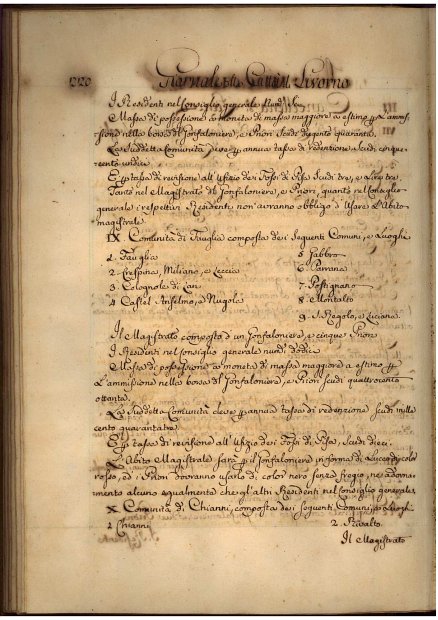 1220 Giornale della Città di Livorno
I Residenti nel Consiglio generale Num.° Sei
Massa di possessione a moneta di massa maggiore a estimo p l'ammis=
sione nella borsa del Gonfaloniere, e Priori Scudi dugento quaranta.
La Suddetta Comunità deve p annua tassa di redenzione Scudi cinque
cento undici.
E p tassa di revisione all'Ufizio dei Fossi di Pisa Scudi tre, e Lire tre
Tanto nel Magistrato del Gonfaloniere, e Priori, quanto nel Consiglio
generale i respettivi Residenti non avranno obbligo d'Usare l'Abito
magistrale.
IX Comunità di Fauglia composta dei Seguenti Comuni, e Luoghi
1. Fauglia
2. Crespina, Miliano, e Leccia
3. Colognole di
4. Castel Anselmo, e Nugola
5.
6. Parrana
7. Postignano
8. Montalto
9. S. Regolo, e Luciana
Il Magistrato composto d'un Gonfaloniere, e cinque Priori
I Residenti nel Consiglio generale num.° dodici
Massa di possessione a moneta di massa maggiore a estimo p
l'ammissione nella borsa del Gonfaloniere, e Priori scudi quattrocento
ottanta.
La Suddetta Comunità deve p annua tassa di redenzione Scudi mille
cento quarantatre.
E p tassa di revisione all'Ufizio dei Fossi di Pisa, Scudi dieci.
L'Abito Magistrale sarà p il Gonfaloniere in forma di Lucco di color
rosso, ed i Priori dovranno usarlo di color nero senza fregio, nè adorna=
mento alcuno egualmente che gl'altri Residenti nel Consiglio generale.
X Comunità di Chianni, composta dei seguenti Comuni, e Luoghi
1. Chianni
2. Rivalto.
Il Magistrato